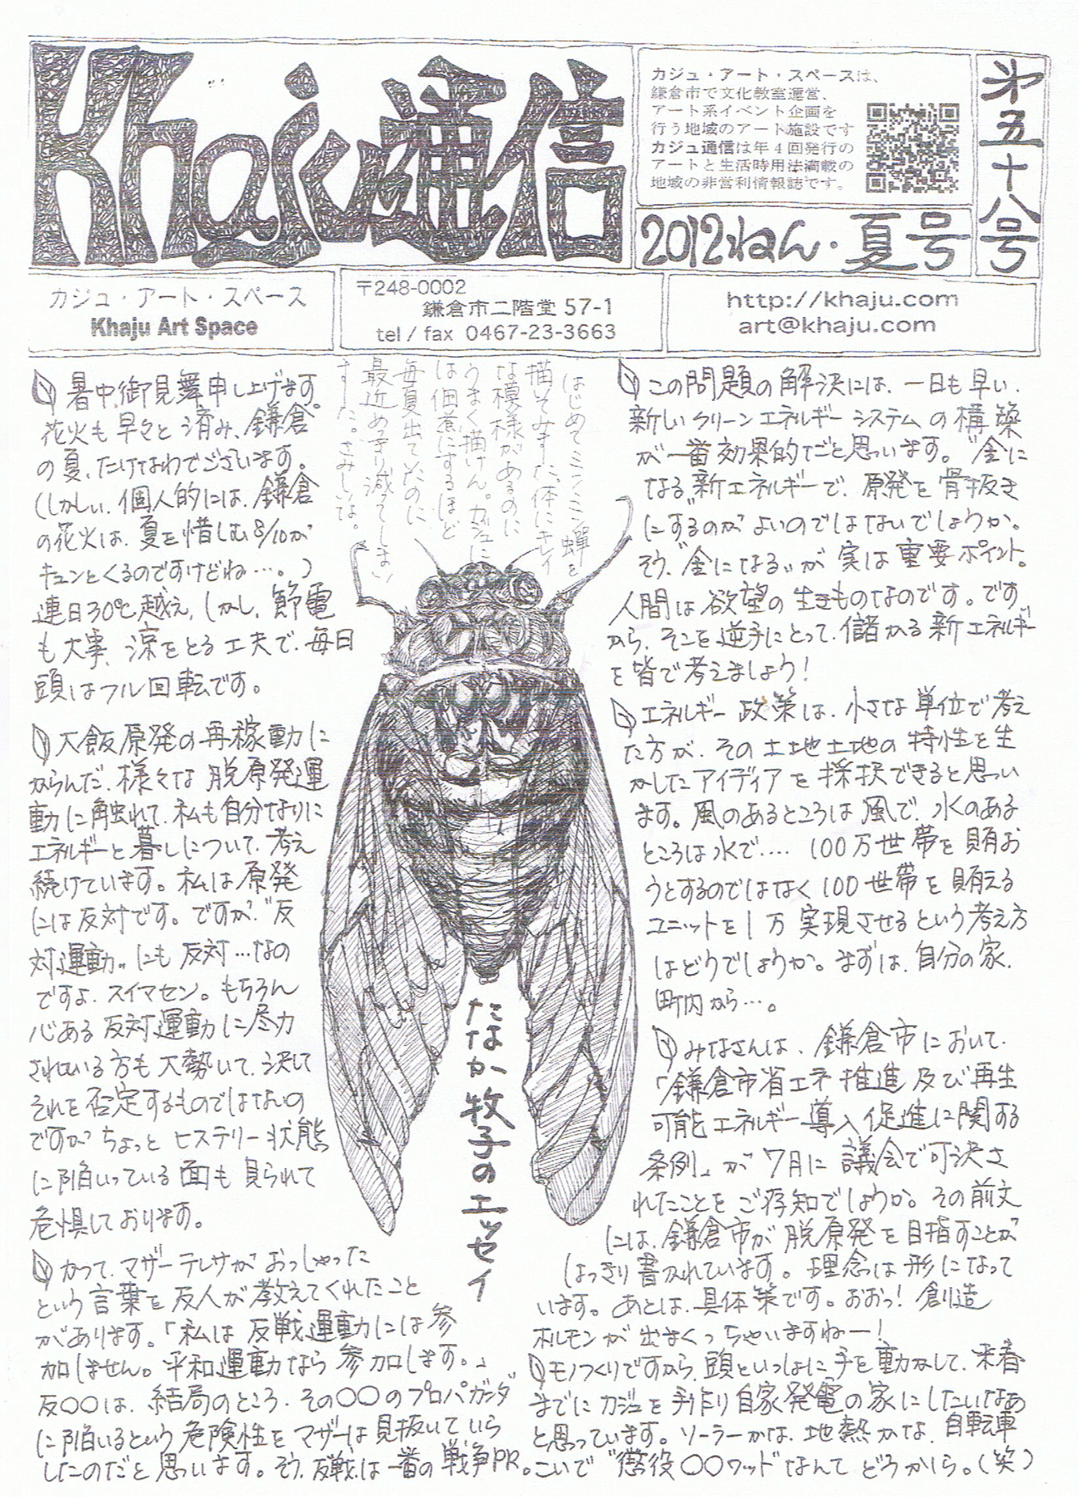 Khaju通信
カジュ・アート・スペースは、
鎌倉市で文化教室運営、
アート系イベント企画を
行う地域のアート施設です
カジュ通信は年4回発行の
アートと生活時用法満載の
地域の非営利情報誌です。
第五十八号
2012ねん・夏号
カジュ・アート・スペース
Khaju Art Space
〒248-0002
鎌倉市二階堂 57-1
tel / fax 0467-23-3663
http://khaju.com
art@khaju.com
暑中御見舞申し上げます
花火も早々と済み、鎌倉
の夏、たけなわでございます。
(しかし、個人的には、鎌倉
の花火は、夏を惜しむ8/10が
キュンとくるのですけどね…。)
連日30℃越え、しかし、節電
も大事、涼をとる工夫で、毎日
頭はフル回転です。
大飯原発の再稼動に
からんだ、様々な脱原発運
動に触れて、私も自分なりに
エネルギーと暮しについて、考え
続けています。私は原発
には反対です。ですが、“反
対運動〟にも反対…なの
ですよ、スイマセン。もちろん
心ある反対運動に尽力
されている方も大勢いて、決して
それを否定するものではないの
ですが、ちょっとヒステリー状態
に陥いっている面も見られて
危惧しております。
かつて、マザーテレサがおっしゃった
という言葉を友人が教えてくれたこと
があります。「私は反戦運動には参
加しません。平和運動なら参加します。」
反〇〇は、結局のところ、その〇〇のプロパガンダ
に陥いるという危険性をマザーは見抜いていら
したのだと思います。そう、反戦は一番の戦争PR。
はじめてミンミン蝉を
描いてみました、体にキレイ
な模様があるのに
うまく描けん。カジュに
は佃煮にするほど
毎夏出ていたのに
最近めっきり減ってしまい
ました。さみしいな。
たなか牧子のエッセイ
この問題の解決には、一日も早い、
新しいクリーンエネルギーシステムの構築
が一番効果的だと思います。“金に
なる〟新エネルギーで、原発を骨抜き
にするのがよいのではないでしょうか。
そう、“金になる〟が実は重要ポイント。
人間は欲望の生きものなのです。です
から、そこを逆手にとって、儲かる新エネルギー
を皆で考えましょう!
エネルギー政策は、小さな単位で考え
た方が、その土地土地の特性を生
かしたアイディアを採択できると思い
ます。風のあるところは風で、水のある
ところは水で…. 100万世帯を賄お
うとするのではなく100世帯を賄える
ユニットを1万実現させるという考え方
はどうでしょうか。まずは、自分の家、
町内から…。
みなさんは、鎌倉市において、
「鎌倉市省エネ推進及び再生
可能エネルギー導入促進に関する
条例」が7月に議会で可決さ
れたことをご存知でしょうか。その前文
には、鎌倉市が脱原発を目指すことが
はっきり書かれています。理念は形になって
います。あとは、具体策です。おおっ!創造
ホルモンが出まくっちゃいますねー!
モノつくりですから、頭といっしょに手を動かして、来春
までにカジュを手作り自家発電の家にしたいなあ
と思っています。ソーラーかな、地熱かな、自転車
こいで“懲役〇〇ワッド〟なんてどうかしら。(笑)